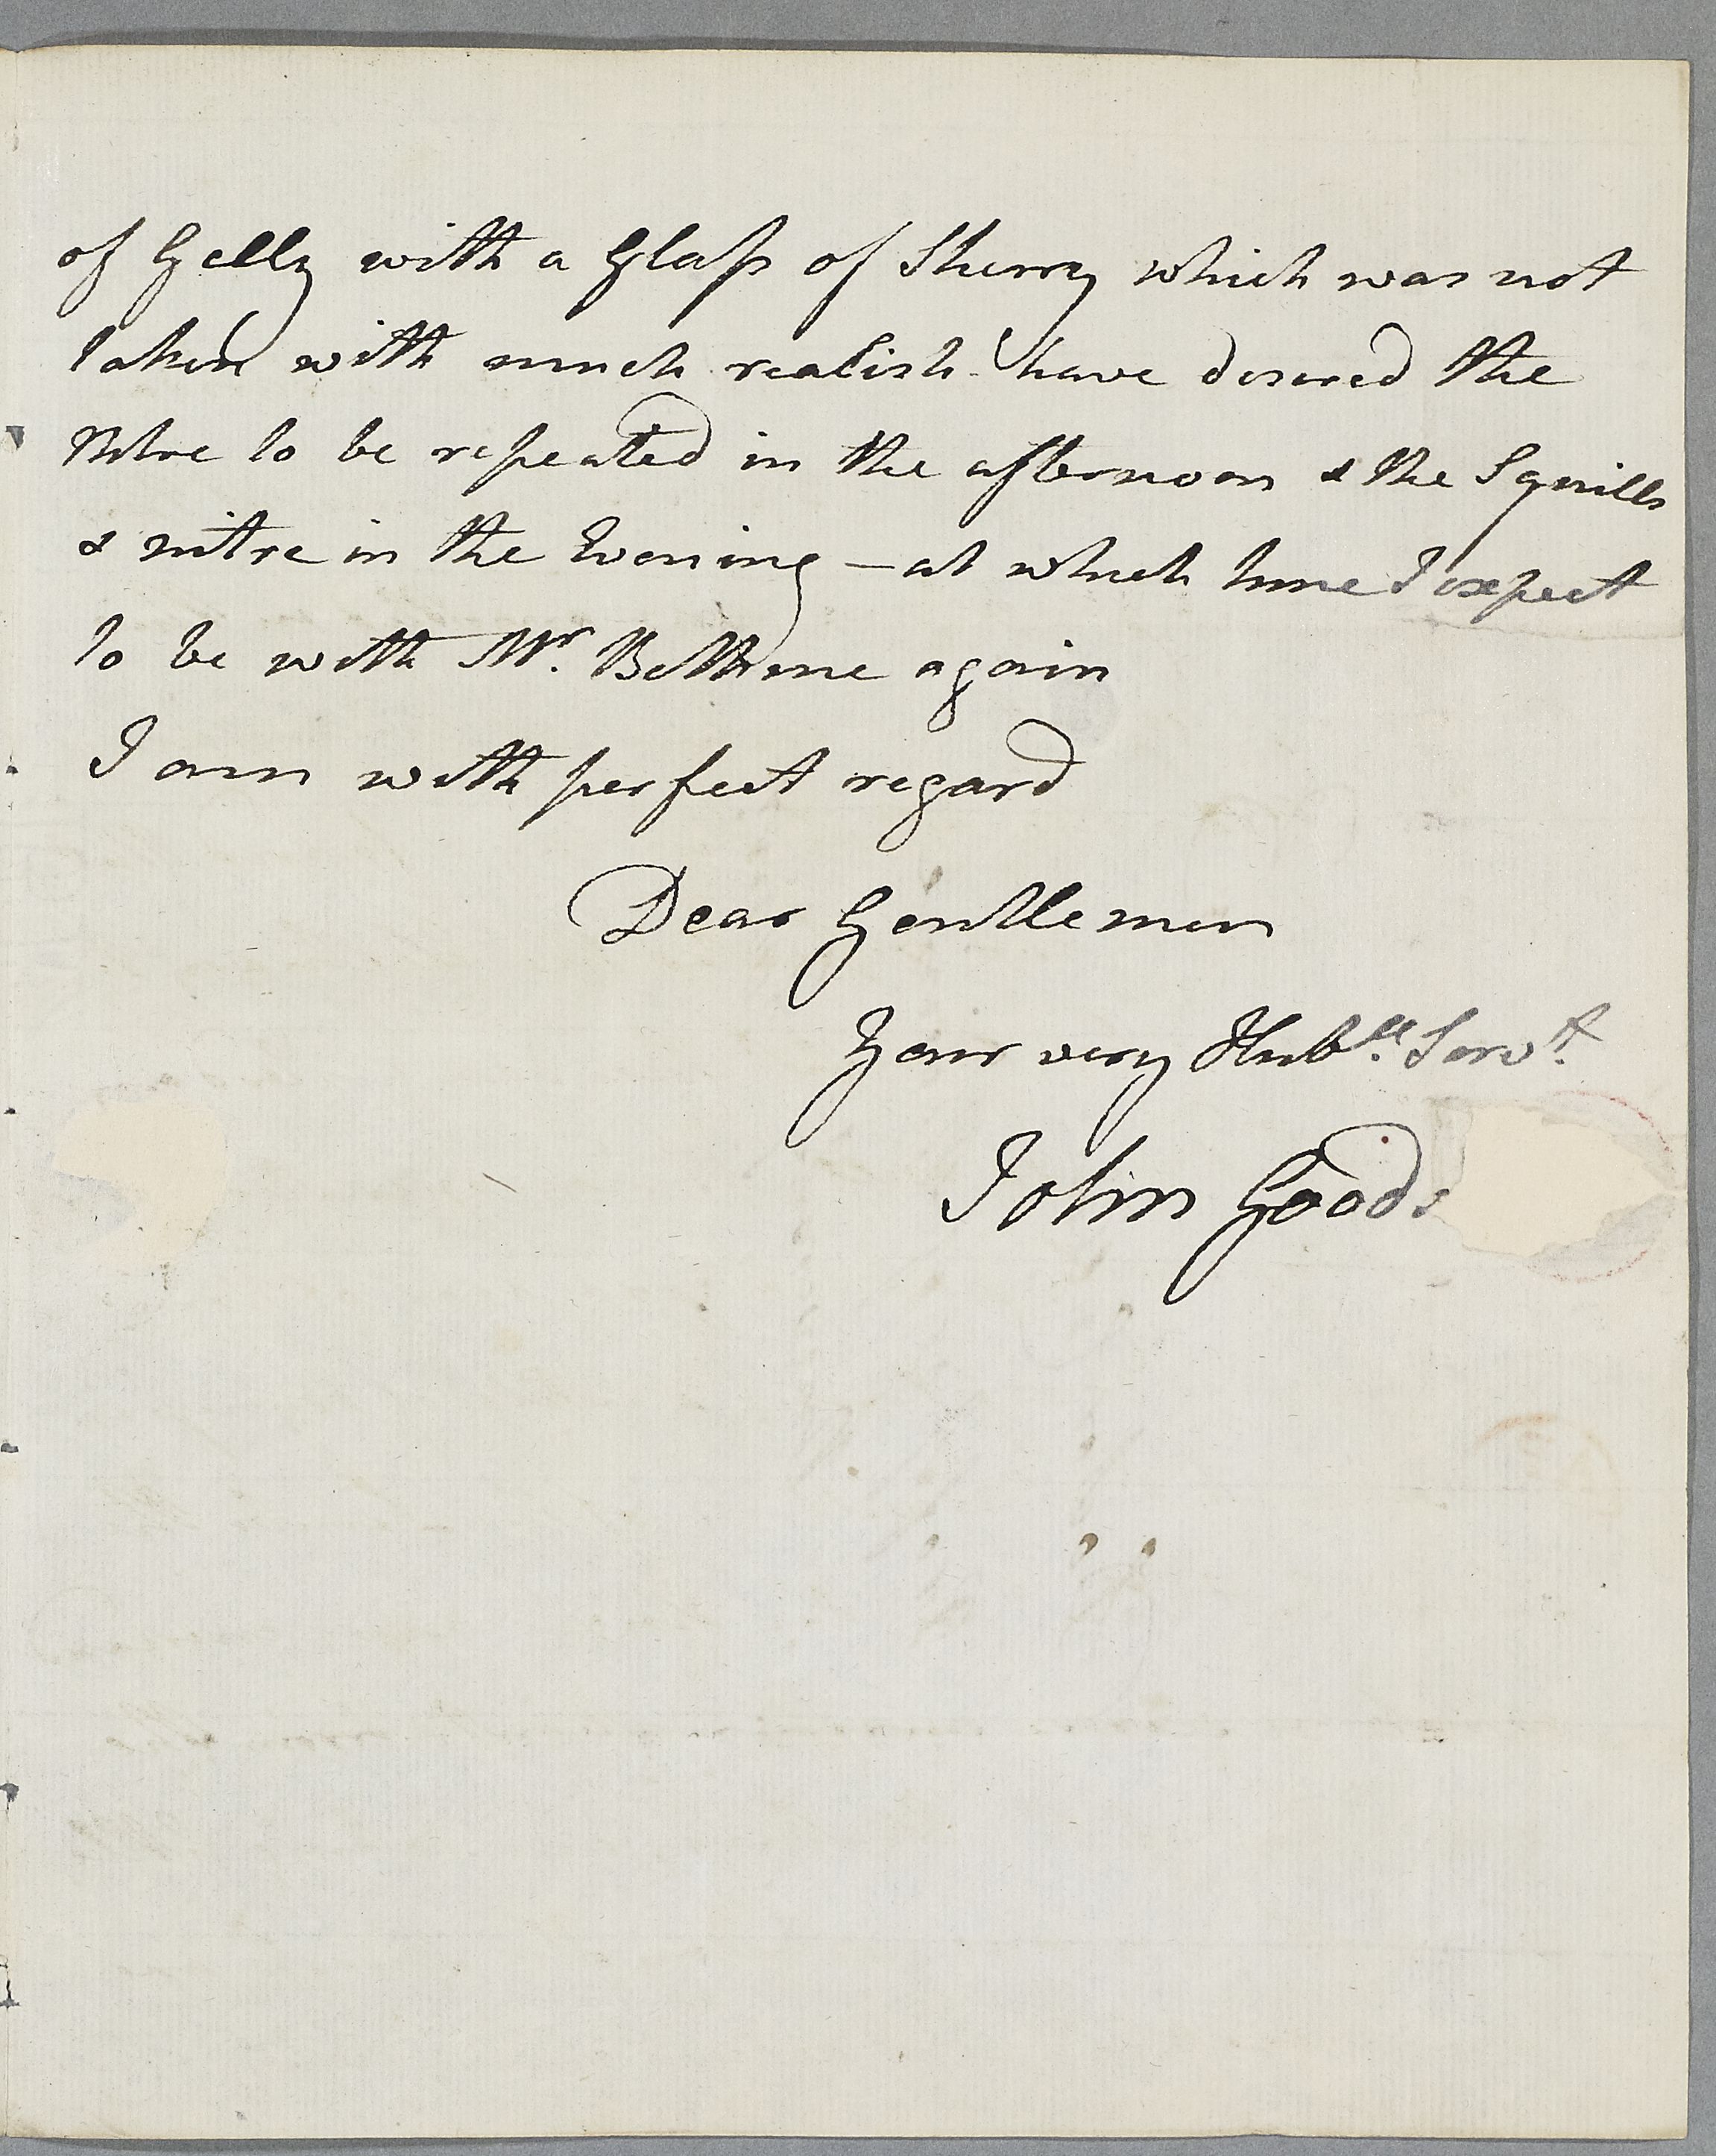 of Gelly with a Glaſs of Sherry which was not
taken with much realish I have desired the
Nitre to be repeated in the afternoon & the Squills
& nitre in the Evening – at which time I expect
to be with Mr. Bethune again
I am with perfect regard
Dear Gentlemen
Your very Huble. Servt.
John Goods